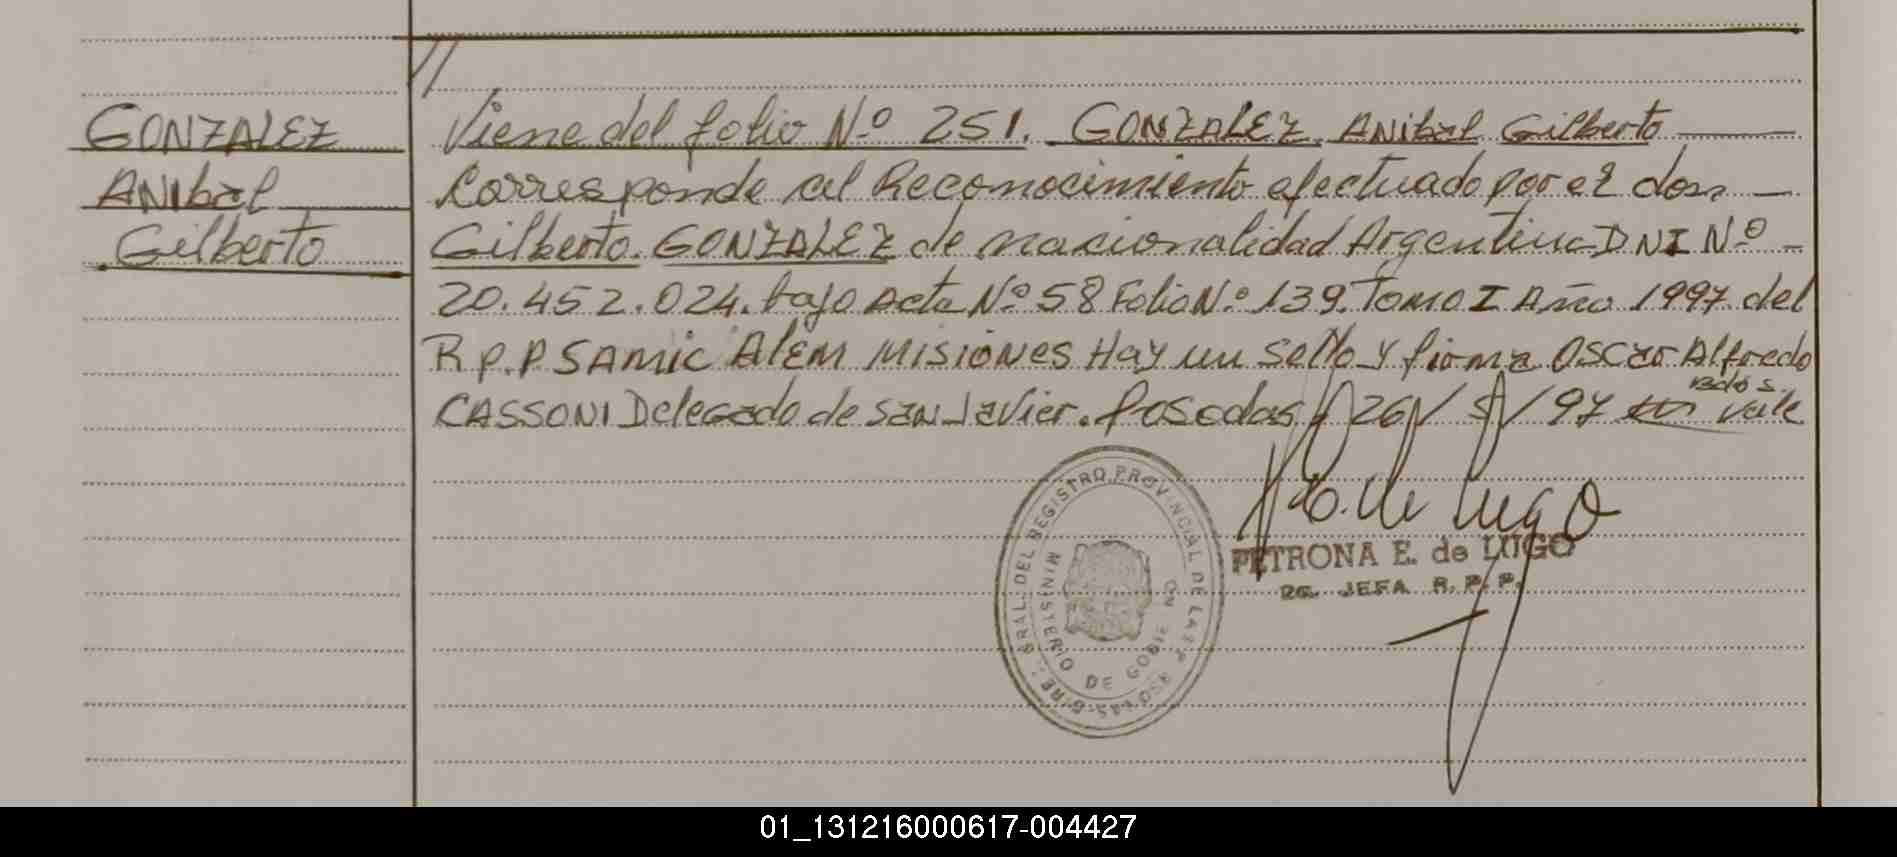 GONZALEZ
ANibal
Gilberto
// Viene del folio Nº 251. GONZALEZ ANibal Gilberto
Corresponde al Reconocimiento efectuado por el don
Gilberto GONZALEZ de nacionalidad Argentina DNI Nº
20.452.024. bajo Acta Nº 58 Folio Nº 139. Tomo I Año 1997 del
R.p.P SAMic AlEM MISIONES Hay un sello y firma OSCar Alfredo
CASSONI Delegado de SAN Javier. Posadas 26/5/97 vale
E. de Lugo
PETRONA E. de LUGO
JEFA R. P. P.
GRAL. DEL REGISTRO PROVINCIAL DE LAS
MINISTERIO DE
01_131216000617-004427